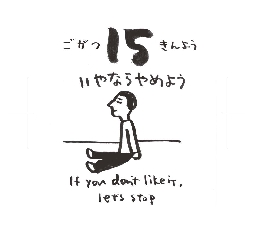 ごがつ 15 きんよう
いやならやめよう
If you don't like it,
let's stop